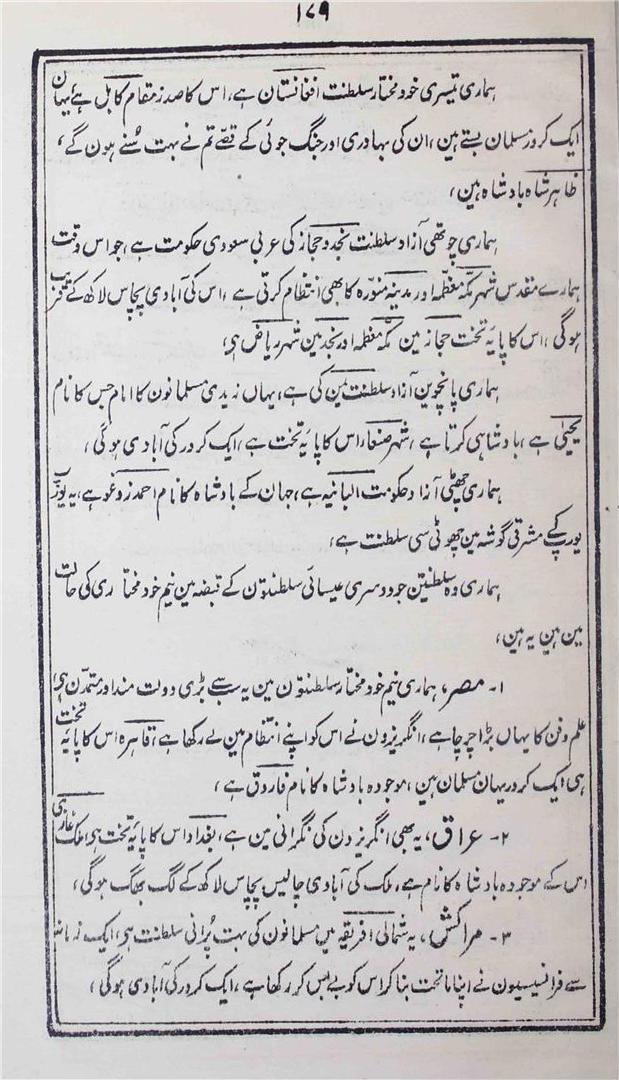 ۱۷۹
ہماری تیسری خود مختار سلطنت افغانستان ہے، اس کا صدر مقام کابل ہے، یہان
ایک کرور مسلمان بستے ہین، ان کی بہادری اور جنگ جوئی کے قصے تم نے بہت سُنے ہون گے،
ظاہر شاہ بادشاہ ہین،
ہماری چوتھی آزاد سلطنت نجد و حجاز کی عربی سعودی حکومت ہے، جو اس وقت
ہمارے مقدس شہر مکہ معظمہ اور مدینہ منورہ کا بھی انتظام کرتی ہے، اس کی آبادی پچاس لاکھ کے قریب
ہوگی، اس کا پایۂ تخت حجاز مین مکہ معظمہ اور نجد مین شہر ریاض ہی،
ہماری پانچوین آزاد سلطنت یمن کی ہے، یہاں زیدی مسلمانون کا امام جس کا نام
یحییٰ ہے، بادشاہی کرتا ہے، شہر صنعاء اس کا پایۂ تخت ہے، ایک کرور کی آبادی ہوگی،
ہماری چھٹی آزاد حکومت البانیہ ہے، جہان کے بادشاہ کا نام احمد زوغو ہے، یہ یورپ
یورپ کے مشرقی گوشہ مین چھوٹی سی سلطنت ہے،
ہماری وہ سلطنتین جو دوسری عیسائی سلطنتون کے قبضہ مین نیم خود مختاری کی حالت
مین ہین یہ ہین،
۱- مصر، ہماری نیم خود مختار سلطنتون مین یہ سب سے بڑی دولت مند اور متمدن ہی
علم و فن کا یہاں بڑا چرچا ہے، انگریزون نے اس کو اپنے انتظام مین لے رکھا ہے، قاہرہ اس کا پایۂ تخت
ہی ایک کرور یہان مسلمان ہین، موجودہ بادشاہ کا نام فاروق ہے،
۲- عراق، یہ بھی انگریزون کی نگرانی مین ہے، بغداد اس کا پایۂ تخت ہی، ملک غازی
اس کے موجودہ بادشاہ کا نام ہے، ملک کی آبادی چالیس پچاس لاکھ کے لگ بھگ ہوگی،
۳- مراکش، یہ شمالی افریقہ میں مسلمانون کی بہت پُرانی سلطنت ہی، ایک زمانہ
سے فرانسیسیون نے اپنا ماتحت بنا کر اس کو بے بس کر رکھا ہے، ایک کرور کی آبادی ہوگی،